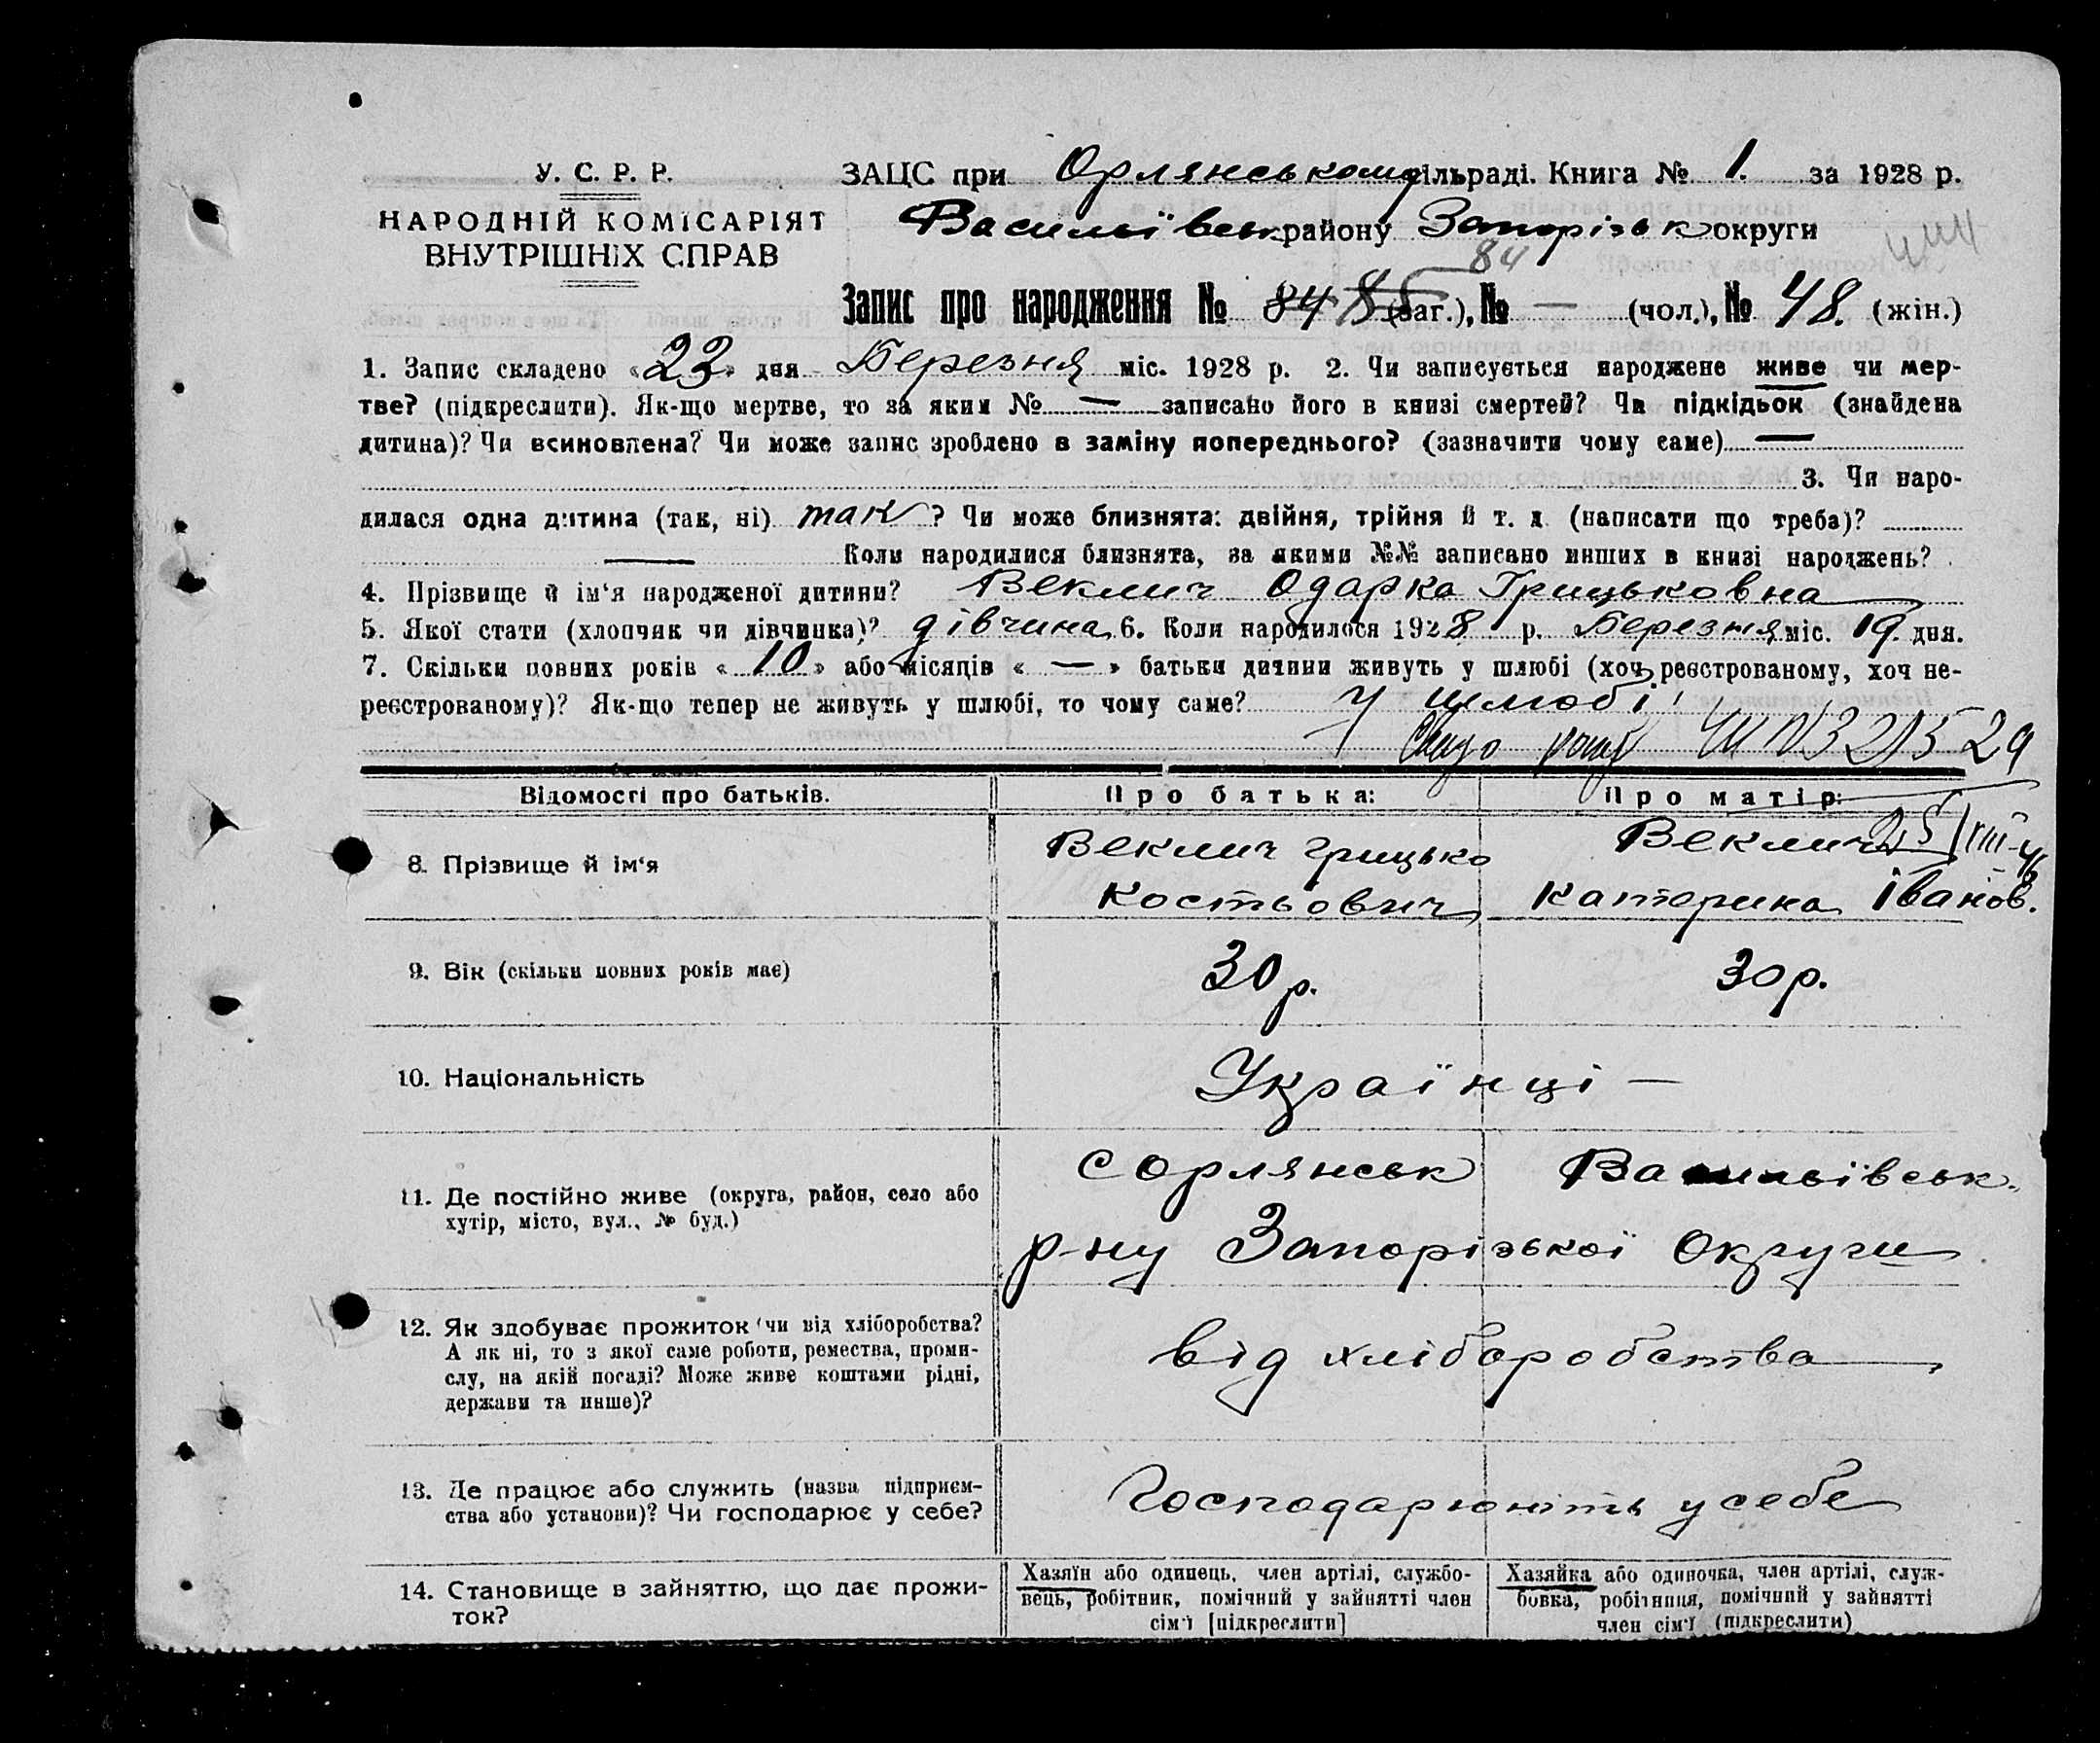 У. С. Р. Р.
НАРОДНІЙ КОМІСАРІЯТ
ВНУТРІШНІХ СПРАВ
ЗАЦС при Орлянському сільраді. Книга № 1. за 1928 р.
Васильївськ району Запорізьк округи
84
Запис про народження № 84 85 (заг.), № — (чол.), № 48. (жін.)
1. Запис складено «23» дня Березня міс. 1928 р. 2. Чи записується народжене живе чи мер-
тве? (підкреслити). Як-що мертве, то за яким № — записано його в книзі смертей? Чи підкідьок (знайдена
дитина)? Чи всиновлена? Чи може запис зроблено в заміну попереднього? (зазначити чому саме) —
3. Чи наро-
дилася одна дитина (так, ні) так ? Чи може близнята: двійня, трійня й т. д. (написати що треба)?
— Коли народилися близнята, за якими №№ записано инших в книзі народжень?
4. Прізвище й ім'я народженої дитини? Веклич Одарка Грицьковна
5. Якої стати (хлопчик чи дівчинка)? дівчина 6. Коли народилося 1928 р. Березня міс. 19. дня.
7. Скільки повних років «10» або місяців « — » батьки дитини живуть у шлюбі (хоч реєстрованому, хоч не-
реєстрованому)? Як-що тепер не живуть у шлюбі, то чому саме? У шлюбі
Відомості про батьків.
Про батька:
Про матір:
8. Прізвище й ім'я
Веклич Грицько
Костьович
Веклич
Катерина Іванов.
9. Вік (скільки повних років має)
30 р.
30 р.
10. Національність
Українці —
11. Де постійно живе (округа, район, село або
хутір, місто, вул., № буд.)
с Орлянськ Васильївськ.
р-ну Запорізької Округи
12. Як здобуває прожиток чи від хліборобства?
А як ні, то з якої саме роботи, ремества, проми-
слу, на якій посаді? Може живе коштами рідні,
держави та инше)?
від хліборобства
13. Де працює або служить (назва підприєм-
ства або установи)? Чи господарює у себе?
Господарюють у себе
14. Становище в зайняттю, що дає прожи-
ток?
Хазяїн або одинець, член артілі, службо-
вець, робітник, помічний у зайнятті член
сім'ї [підкреслити]
Хазяйка або одиночка, член артілі, служ-
бовка, робітниця, помічний у зайнятті
член сім'ї (підкреслити)